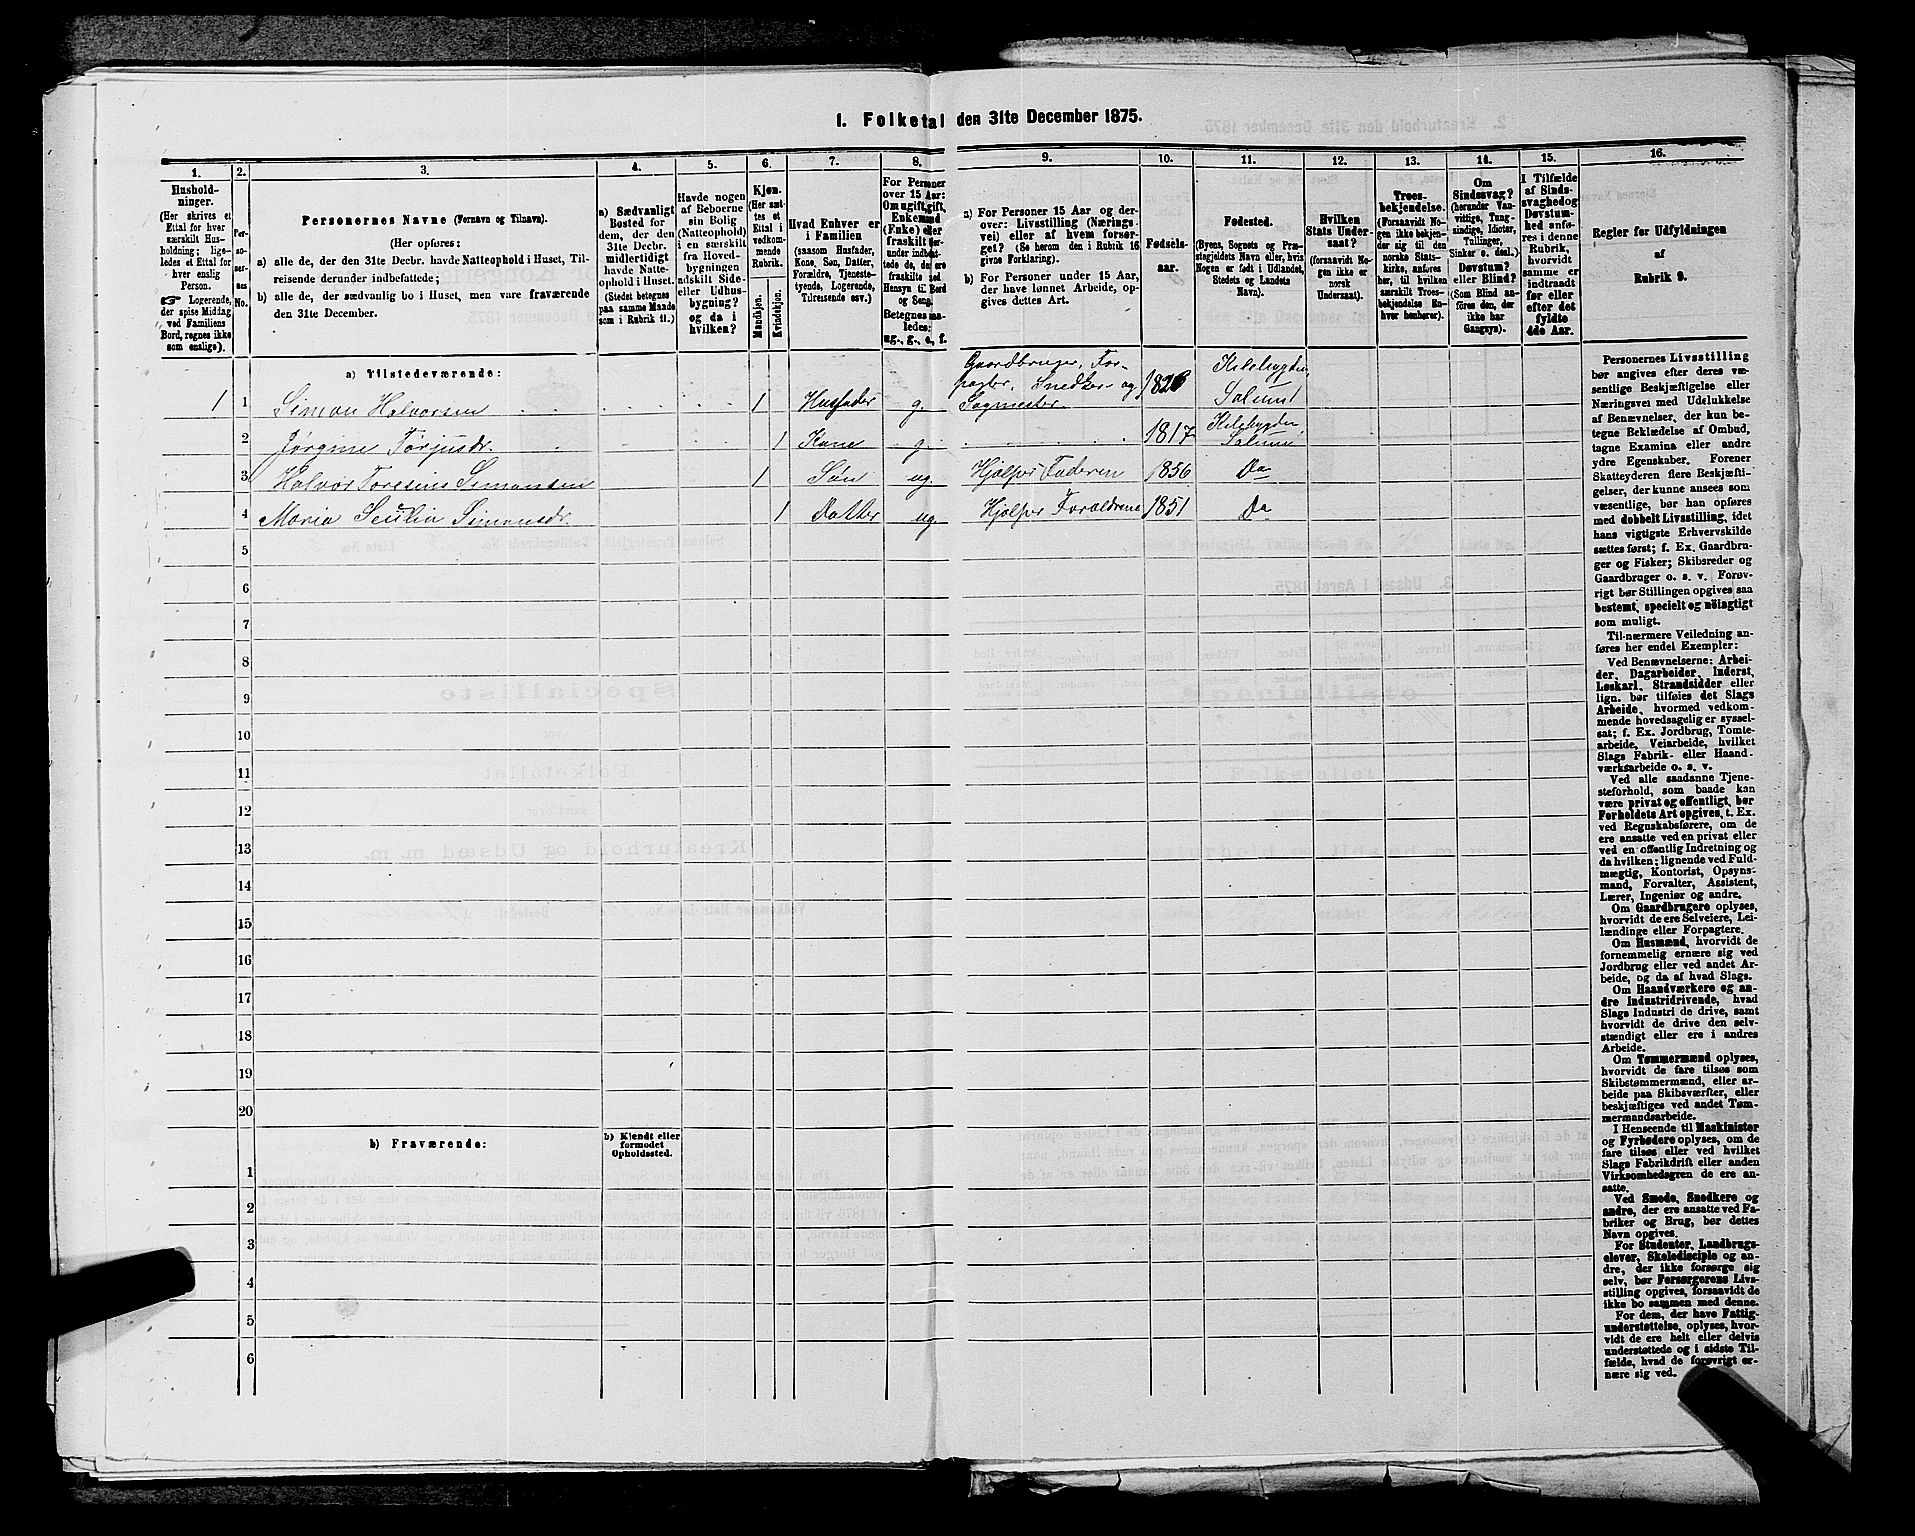 1. Folketal den 31te December 1875.
1. 2. 3. 4. 5. 6. 7. 8. 9. 10. 11. 12. 13. 14. 15. 16.
Hushold-
ninger.
(Her skrives et
Ettal for hver
særskilt Hus-
holdning; lige-
ledes et Ettal for
hver enslig
Person.
☞ Logerende,
der spise Middag
ved Familiens
Bord, regnes ikke
som enslige).
Per-
so-
ner-
nes
No.
Personernes Navne (Fornavn og Tilnavn).
(Her opføres:
a) alle de, der den 31te Decbr. havde Natteophold i Huset, Til-
reisende derunder indbefattede;
b) alle de, der sædvanlig bo i Huset, men vare fraværende
den 31te December.
a) Sædvanligt
Bosted for
dem, der den
31te Decbr.
midlertidigt
havde Natte-
ophold i Huset.
(Stedet betegnes
paa samme Maade
som i Rubrik 11.)
Havde nogen
af Beboerne
sin Bolig
(Natteophold)
i en særskilt
fra Hoved-
bygningen
adskilt Side-
eller Udhus-
bygning?
og da i
hvilken?
Kjøn.
(Her sæt-
tes et
Ettal i
vedkom-
mende
Rubrik.
Mandkjøn.
Kvindekjøn.
Hvad Enhver er
i Familien
(saasom Husfader,
Kone, Søn, Datter,
Forældre, Tjeneste-
tyende, Logerende,
Tilreisende osv.)
For Personer
over 15 Aar:
Om ugift, gift,
Enkemand
(Enke) eller
fraskilt
Betegnes saa-
ledes:
ug., g., e., f.
a) For Personer 15 Aar og der-
over: Livsstilling (Nærings-
vei) eller af hvem forsør-
get? (Se herom den i Rubrik 16
givne Forklaring).
b) For Personer under 15 Aar,
der have lønnet Arbeide, op-
gives dettes Art.
Fødsels-
aar.
Fødested.
(Byens, Sognets og Præ-
stegjeldets Navn eller, hvis
Nogen er født i Udlandet,
Stedets og Landets
Navn).
Hvilken
Stats Under-
saat?
(forsaavidt No-
gen ikke er
norsk
Undersaat).
Troes-
bekjendelse.
(Forsaavidt No-
gen ikke bekjen-
der sig til den
norske Stats-
kirke, anføres
her, til hvilken
særskilt Troes-
bekjendelse En-
hver henhører).
Om
Sindssvag?
(herunder Van-
vittige, Tung-
sindige, Idioter,
Tullinger,
Sinker o. desl.).
Døvstum?
eller Blind?
(Som Blind an-
føres den, der
ikke har
Gangsyn).
I Tilfælde
af Sinds-
svaghed og
Døvstum-
hed anfø-
res i denne
Rubrik,
hvorvidt
samme er
indtraadt
før eller
efter det
fyldte
4de Aar.
Regler for Udfyldningen
af
Rubrik 9.
a) Tilstedeværende:
1 1 Simon Halvorsen 1 Husfader g. Gaardbruger, For-
pagter, Snedker og
Sagmester 1826 Kilebygden,
Solum
2 Jørgine Torjusdr. 1 Kone g. 1817 Kilebygden,
Solum
3 Halvor Toresius Simonsen 1 Søn ug. Hjælper Faderen 1856 Do
4 Maria Secilia Simonsdr. 1 Datter ug. Hjælper Forældrene 1851 Do
5
6
7
8
9
10
11
12
13
14
15
16
17
18
19
20
b) Fraværende:
b) Kjendt eller
formodet
Opholdssted.
1
2
3
4
5
6
Personernes Livsstilling
bør angives efter deres væ-
sentlige Beskjæftigelse eller
Næringsvei med Udelukkelse
af Benævnelser, der kun be-
tegne Beklædelse af Ombud,
tagne Examina eller andre
ydre Egenskaber. Forener
Skatteyderen flere Beskjæfti-
gelser, der kunne ansees som
væsentlige, bør han opføres
med dobbelt Livsstilling, idet
hans vigtigste Erhvervskilde
sættes først; f. Ex. Gaardbru-
ger og Fisker; Skibsreder og
Gaardbruger o. s. v. Forøv-
rigt bør Stillingen opgives saa
bestemt, specielt og nöiagtigt
som muligt.
Til nærmere Veiledning an-
føres her endel Exempler:
Ved Benævnelserne: Arbei-
der, Dagarbeider, Inderst,
Løskarl, Strandsidder eller
lign. bør tilføies det Slags
Arbeide, hvormed vedkom-
mende hovedsagelig er syssel-
sat; f. Ex. Jordbrug, Tomte-
arbeide, Veiarbeide, hvilket
Slags Fabrik- eller Haand-
værksarbeide o. s. v.
Ved alle saadanne Tjene-
steforhold, som baade kan
være privat og offentligt, bør
Forholdets Art opgives, t. Ex.
ved Regnskabsførere, om de
ere ansatte ved en privat eller
ved en offentlig Indretning og
da hvilken; lignende ved Fuld-
mægtig, Kontorist, Opsyns-
mand, Forvalter, Assistent,
Lærer, Ingeniør og andre.
Om Gaardbrugere oplyses,
hvorvidt de ere Selveiere, Lei-
lændinge eller Forpagtere.
Om Husmænd, hvorvidt de
fornemmelig ernære sig ved
Jordbrug eller ved andet Ar-
beide, og da af hvad Slags.
Om Haandværkere og an-
dre Industridrivende, hvad
Slags Industri de drive, samt
hvorvidt de drive den selv-
stændigt eller ere i andres
Arbeide.
Om Tømmermænd oplyses,
hvorvidt de fare tilsøs som
Skibstømmermænd, eller ar-
beide paa Skibsværfter, eller
beskjæftiges ved andet Tøm-
mermandsarbeide.
I Henseende til Maskinister
og Fyrbødere oplyses, om de
fare tilsøs eller ved hvilket
Slags Fabrikdrift eller anden
Virksomhedsgren de ere an-
satte.
Ved Smede, Snedkere og
andre, der ere ansatte ved Fa-
briker og Brug, bør dettes
Navn opgives.
For Studenter, Landbrugs-
elever, Skoledisciple og an-
dre, der ikke forsørge sig
selv, bør Forsørgerens Livs-
stilling opgives, forsaavidt de
ikke bo sammen med denne.
For dem, der have Fattig-
understøttelse, oplyses, hvor-
vidt de ere helt eller delvis
understøttede og i sidste Til-
fælde, hvad de forøvrigt er-
nære sig ved.